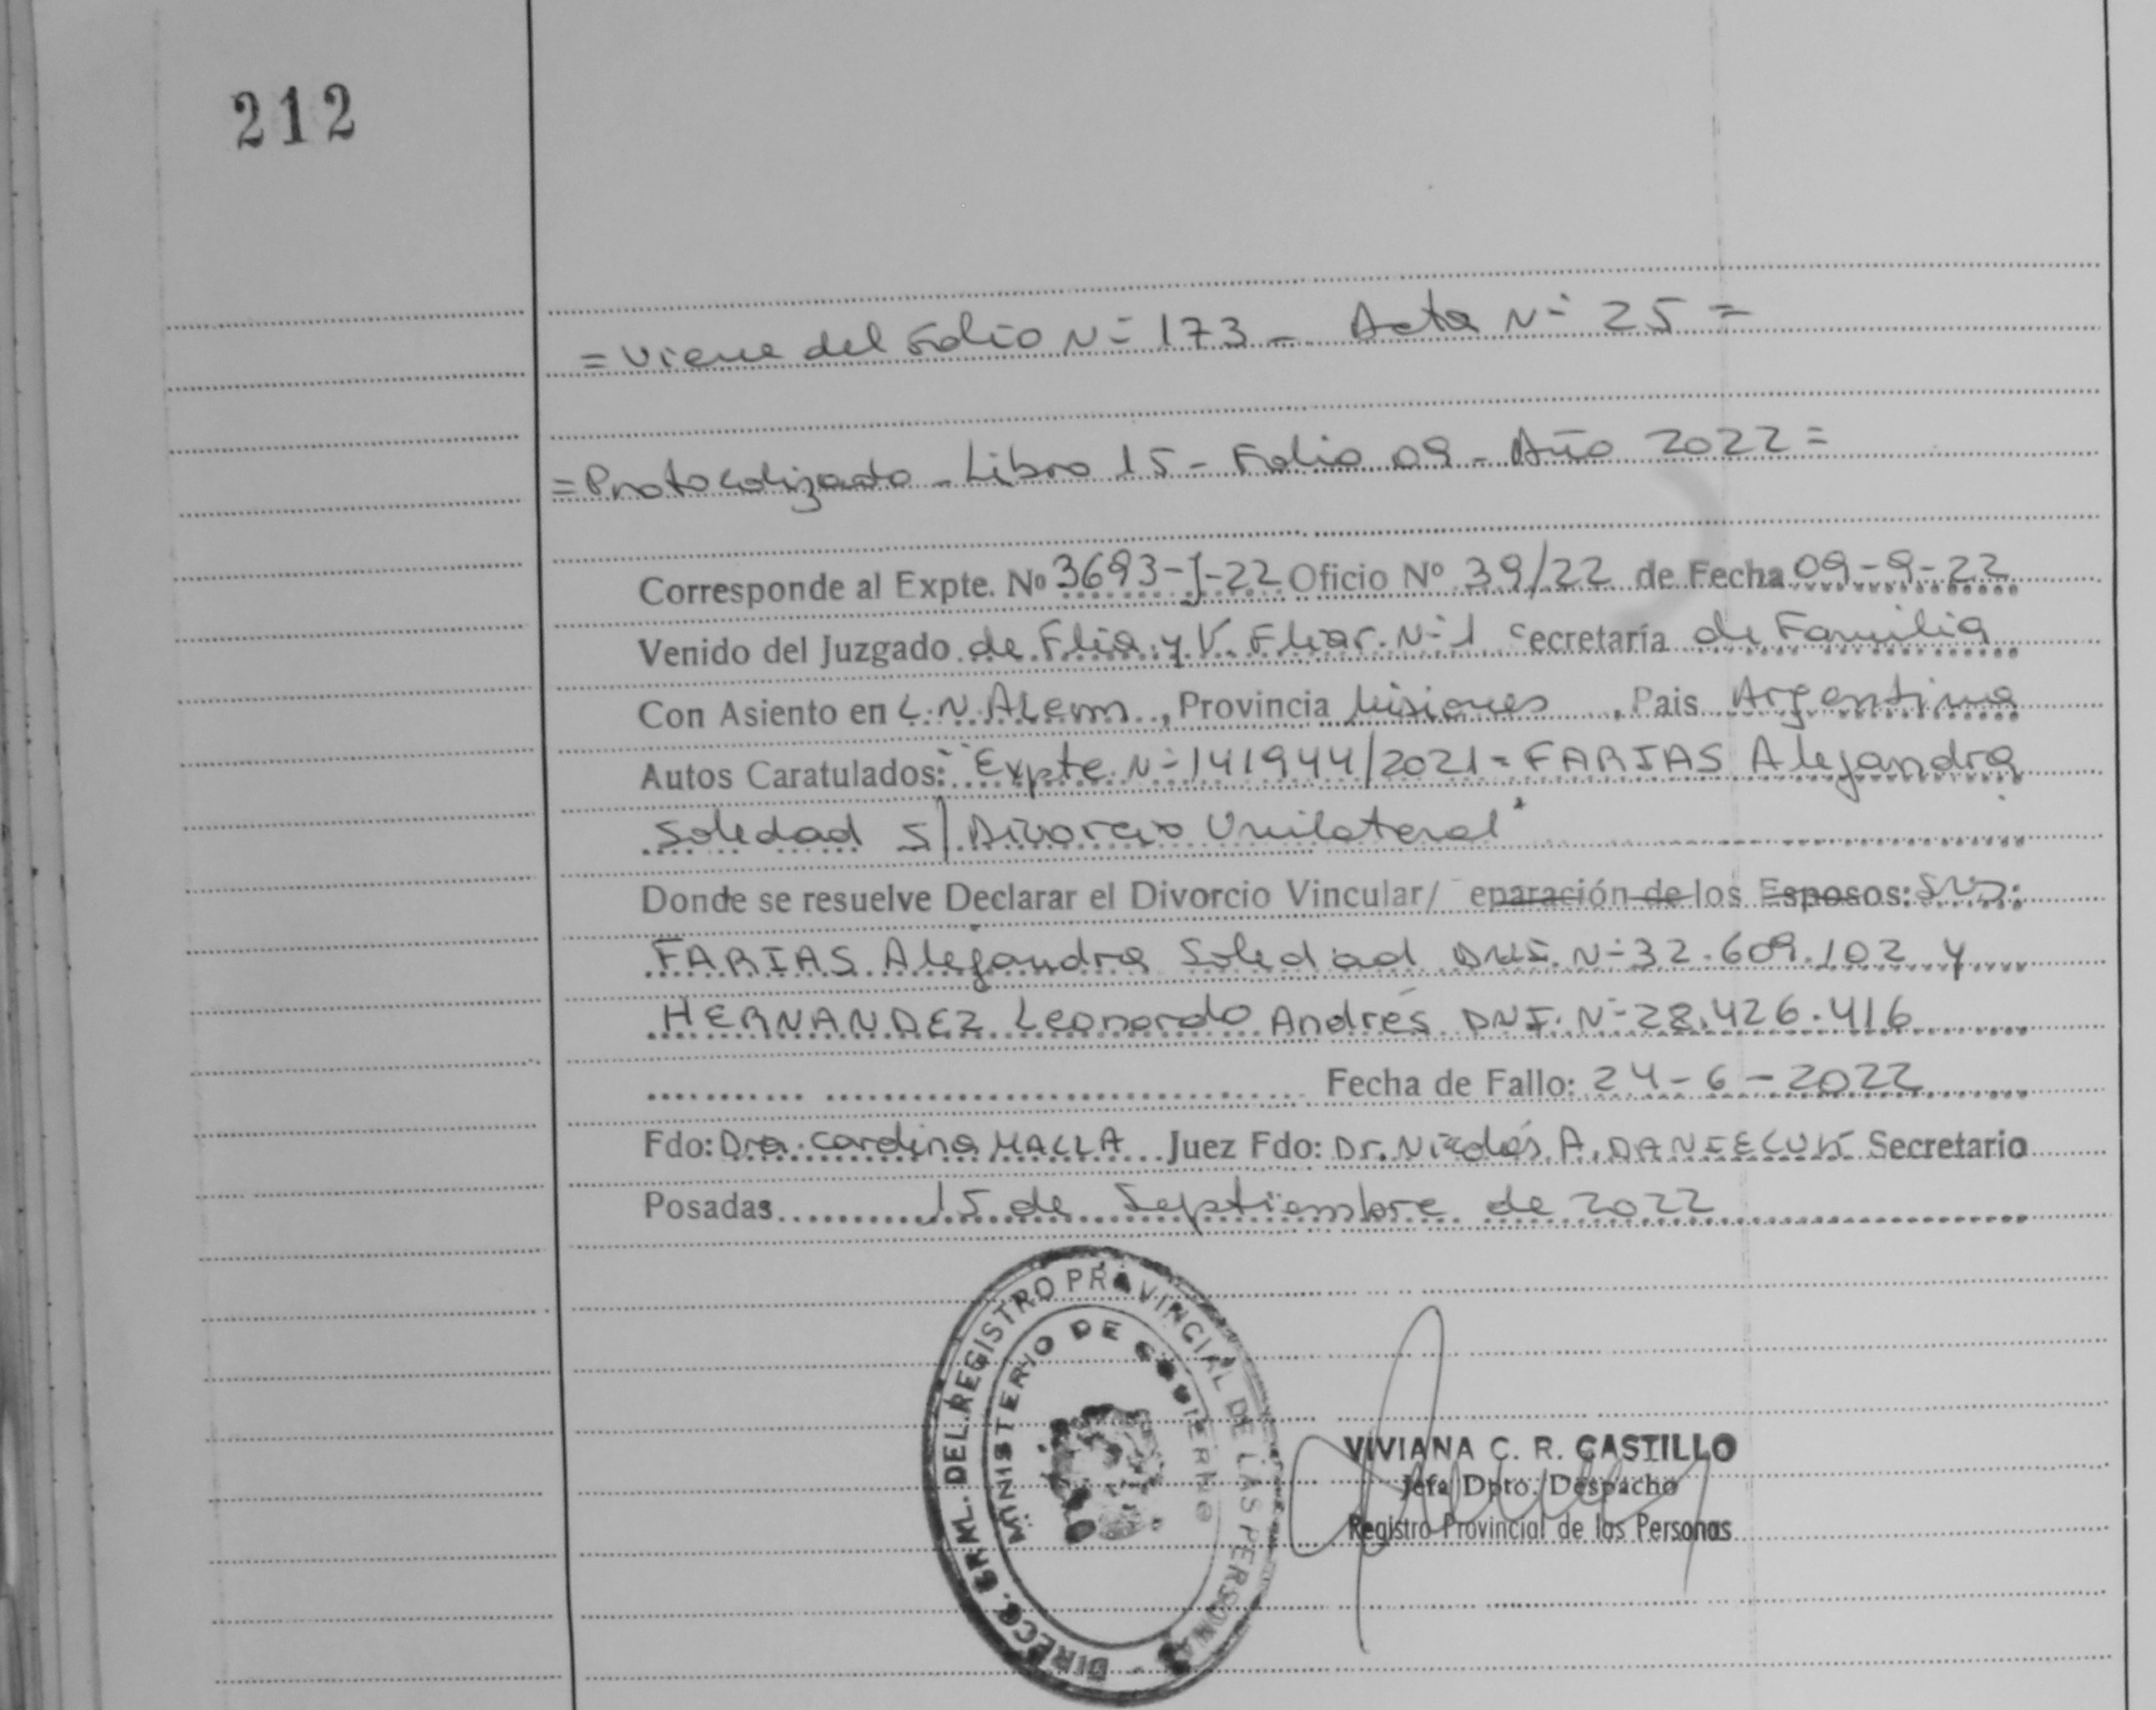 212
= Viene del Folio N= 173 - Acta N= 25 =
= Protocolizado - Libro 15 - Folio 09 - Año 2022 =
Corresponde al Expte. Nº 3693-J-22 Oficio Nº 39/22 de Fecha 09-9-22
Venido del Juzgado de Flia. y V. Fliar. N=1 Secretaría de Familia
Con Asiento en L.N. Alem, Provincia Misiones, Pais Argentina
Autos Caratulados: "Expte. N=141944/2021 = FARIAS Alejandra
Soledad S/ Divorcio Unilateral"
Donde se resuelve Declarar el Divorcio Vincular/ eparación de los Esposos:
FARIAS Alejandra Soledad DNI. N=32.609.102 y
HERNANDEZ Leonardo Andrés DNI. N=28.426.416
Fecha de Fallo: 24-6-2022
Fdo: Dra. Carolina MALLA Juez Fdo: Dr. Nicolás A. Secretario
Posadas 15 de Septiembre de 2022
DIRECC. GRAL. DEL REGISTRO PROVINCIAL DE LAS PERSONAS
MINISTERIO DE GOBIERNO
VIVIANA C. R. CASTILLO
Jefa Dpto. Despacho
Registro Provincial de las Personas